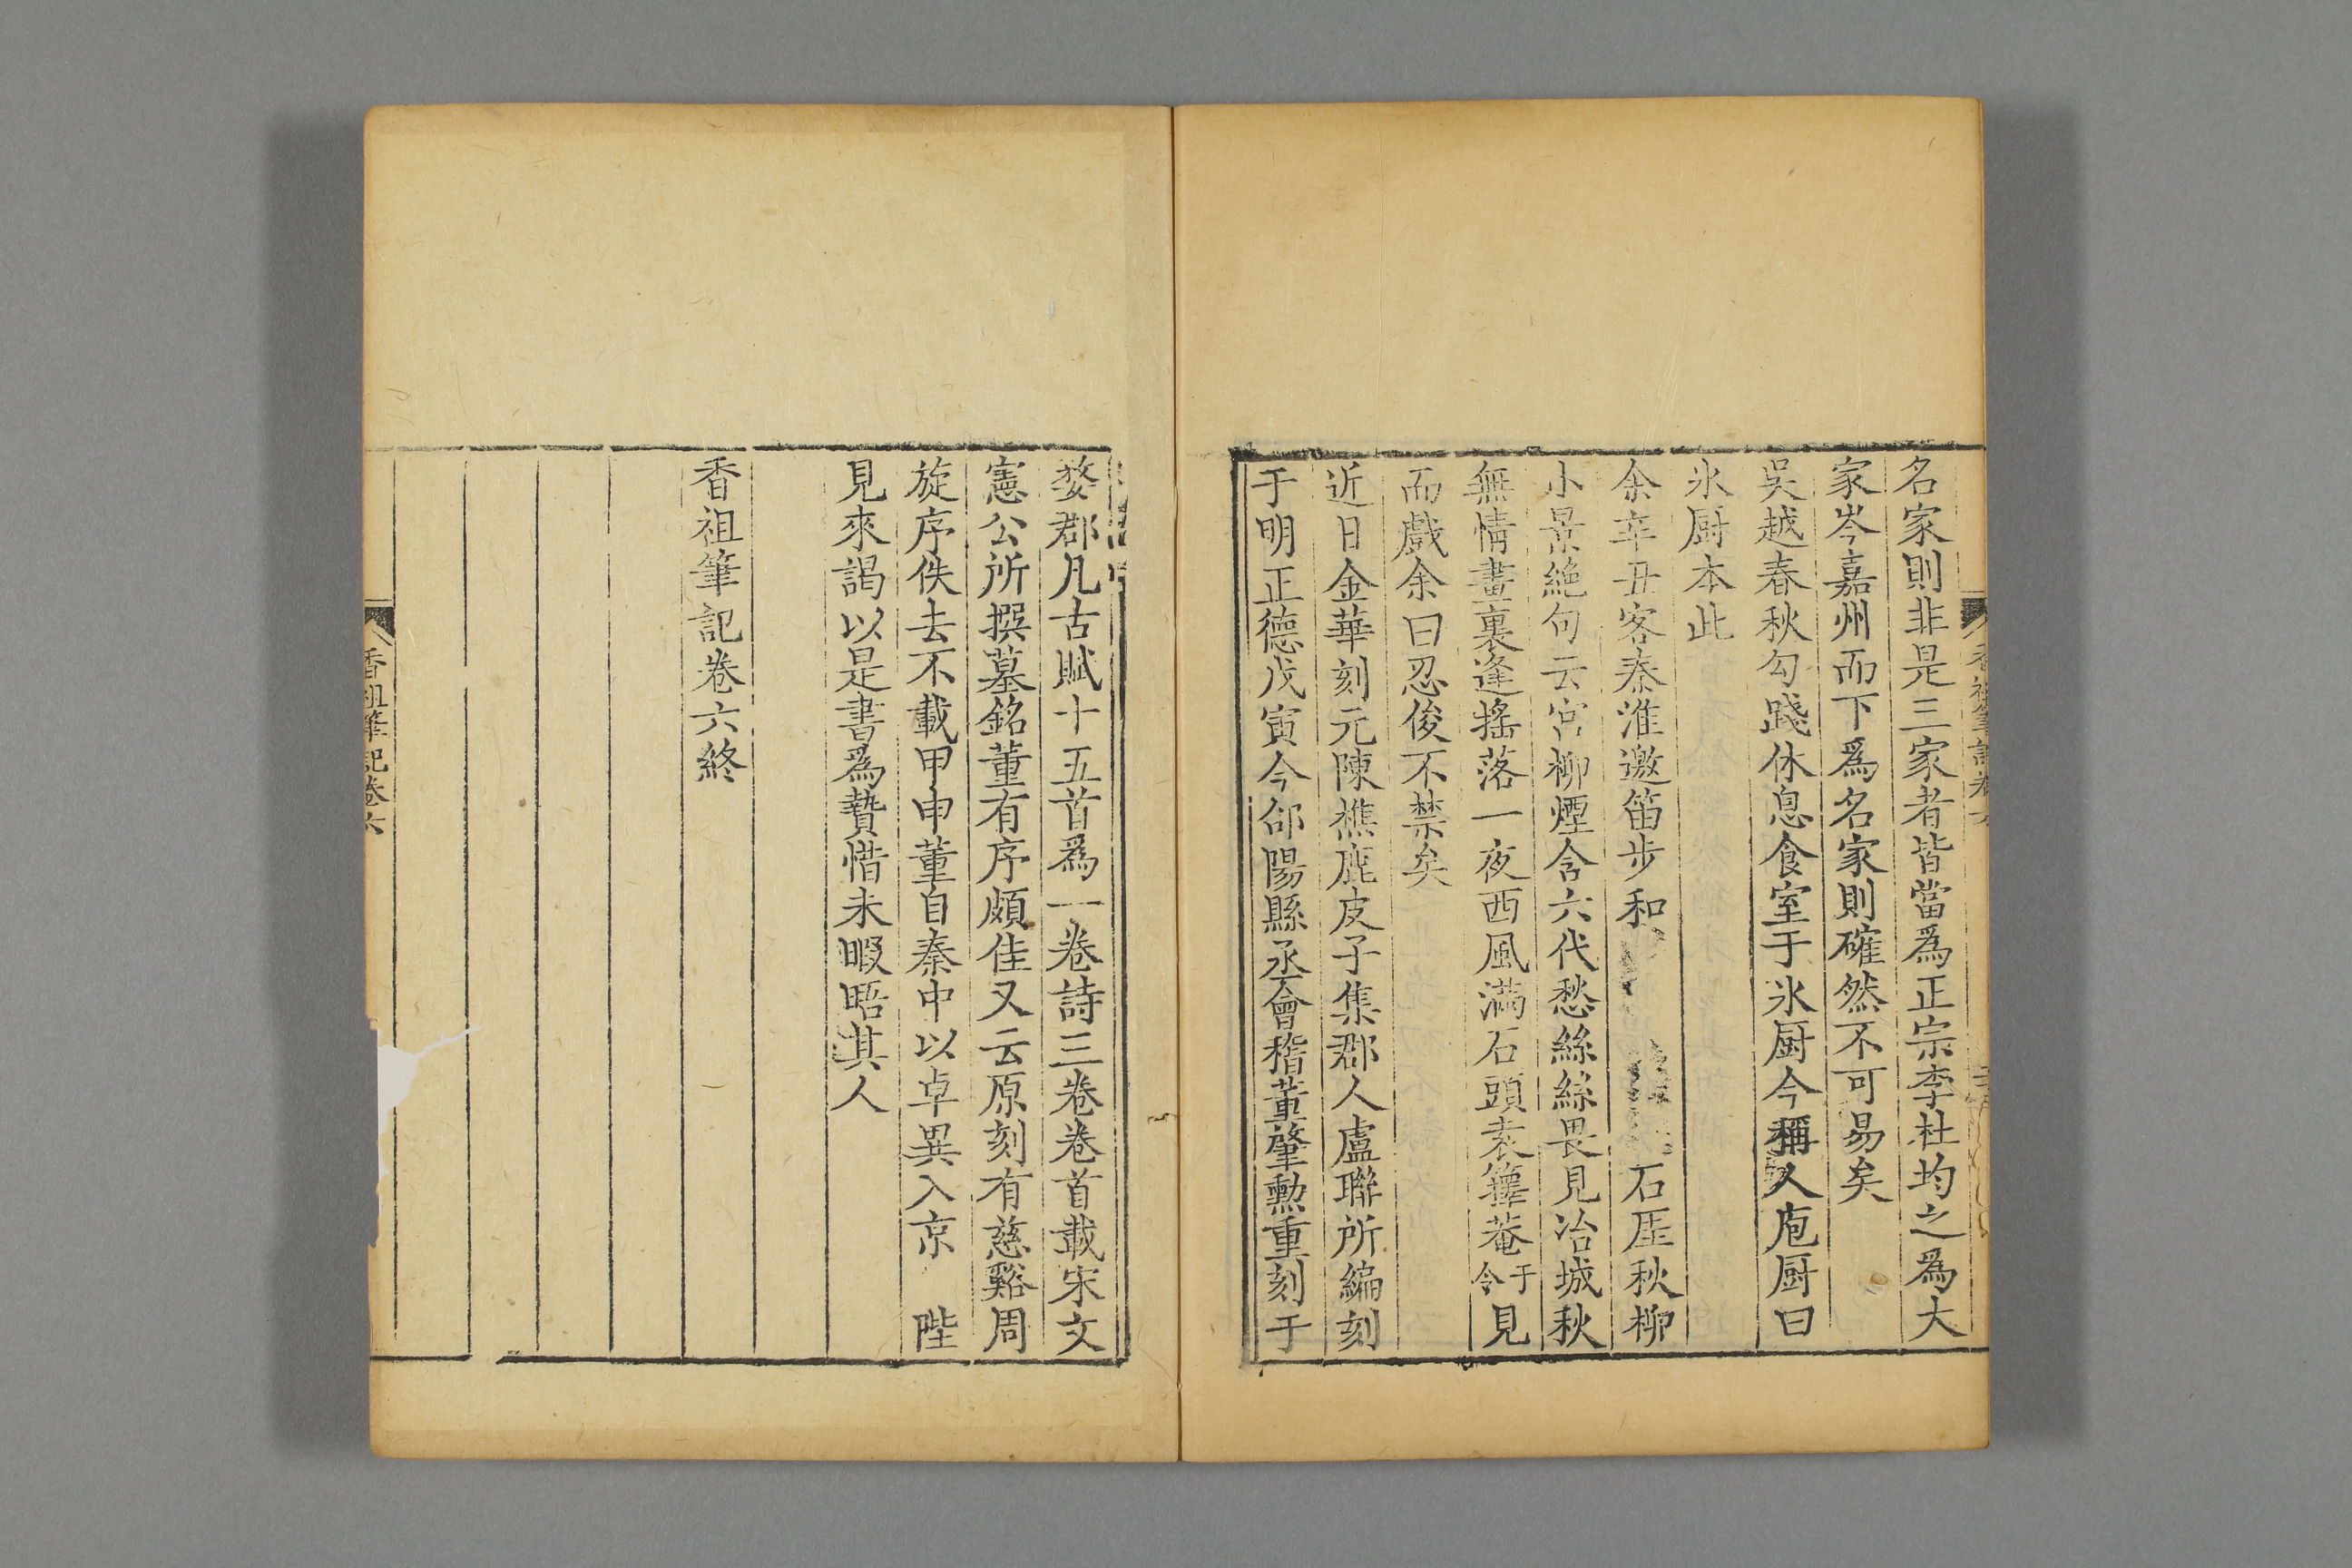 名家則非是三家者皆當爲正宗李杜均之爲大
家岑嘉州而下爲名家則確然不可易矣
吳越春秋勾踐休息食室于氷厨今稱人庖厨曰
氷厨本此
余辛丑客秦淮邀笛步和 石厓秋柳
小景絶句云宮柳煙含六代愁絲絲畏見冶城秋
無情畫裏逢搖落一夜西風滿石頭袁籜菴于令見
而戲余曰忍俊不禁矣
近日金華刻元陳樵鹿皮子集郡人盧聯所編刻
于明正德戊寅今郃陽縣丞會稽董肇勲重刻于
婺郡凡古賦十五首爲一卷詩三卷卷首載宋文
憲公所撰墓銘董有序頗佳又云原刻有慈谿周
旋序佚去不載甲申董自秦中以卓異入京 陛
見來謁以是書爲贄惜未暇晤其人
香祖筆記卷六終
香祖筆記卷六